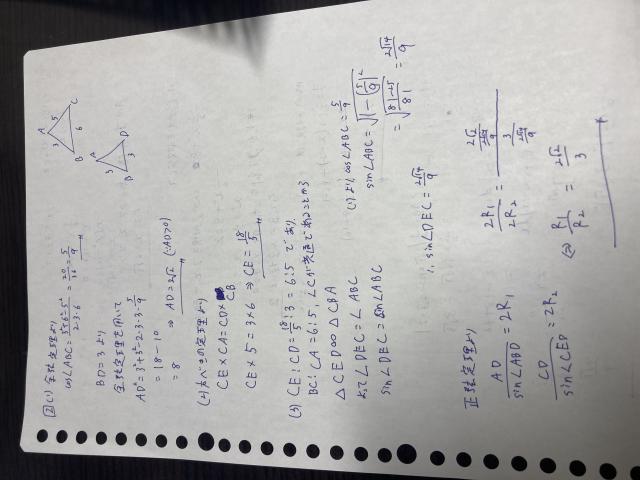 2 (1) 余弦定理より
cos∠ABC = 3²+6²-5² / 2・3・6 = 20/36 = 5/9
BD=3より
余弦定理を用いて
AD² = 3²+3²-2・3・3・5/9
= 18-10
= 8 ⇒ AD=2√2 (∵AD>0)
A B C 3 5 6
A B D 3 3
(2) 方べきの定理より
CE×CA=CD×CB
CE×5=3×6 ⇒ CE=18/5
(3) CE:CD=18/5:3=6:5であり,
BC:CA=6:5, ∠Cが共通であることから
△CED∽△CBA
よって∠DEC=∠ABC
sin∠DEC=sin∠ABC
(1)より cos∠ABC=5/9
sin∠ABC=√1-(5/9)²
=√81-25/81 = 2√14/9
∴ sin∠DEC=2√14/9
正弦定理より
AD/sin∠ABD=2R₁
CD/sin∠CED=2R₂
2R₁/2R₂ = 2√2/(2√14/9) / 3/(2√14/9)
⇔ R₁/R₂ = 2√2/3